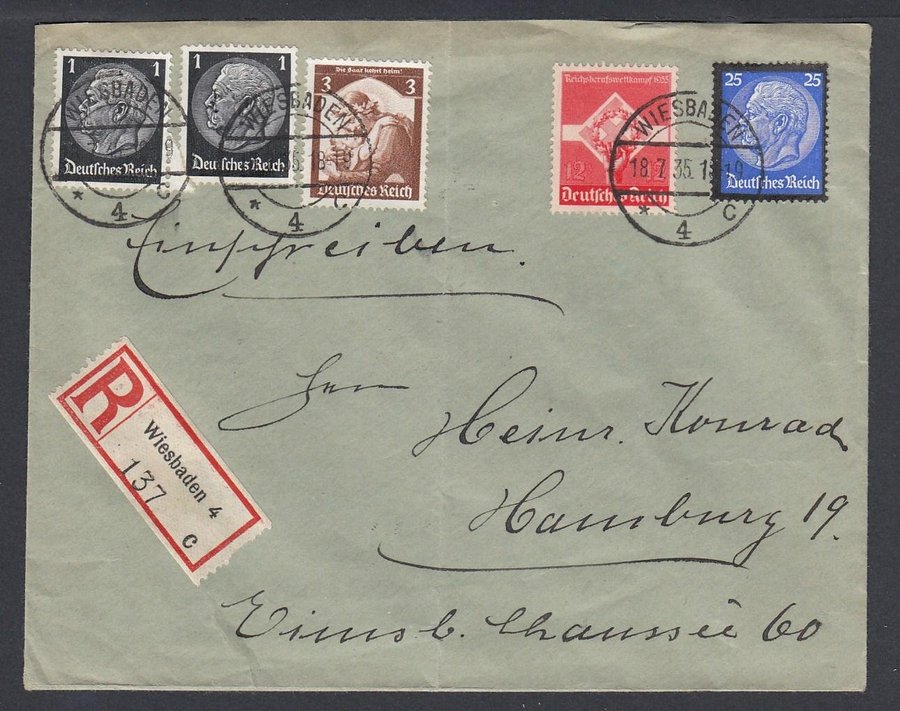 1 1
Deutsches Reich
1 1
Deutsches Reich
Die Saar kehrt heim!
3 3
Deutsches Reich
Reichsberufswettkampf 1935
12 12
Deutsches Reich
25 25
Deutsches Reich
WIESBADEN
* 4 c
WIESBADEN
* 4 c
WIESBADEN
18.7.35.18-19
* 4 c
Einschreiben.
R
Wiesbaden 4
137 c
Herrn
Heinr. Konrad
Hamburg 19.
Eimsb. Chaussée 60